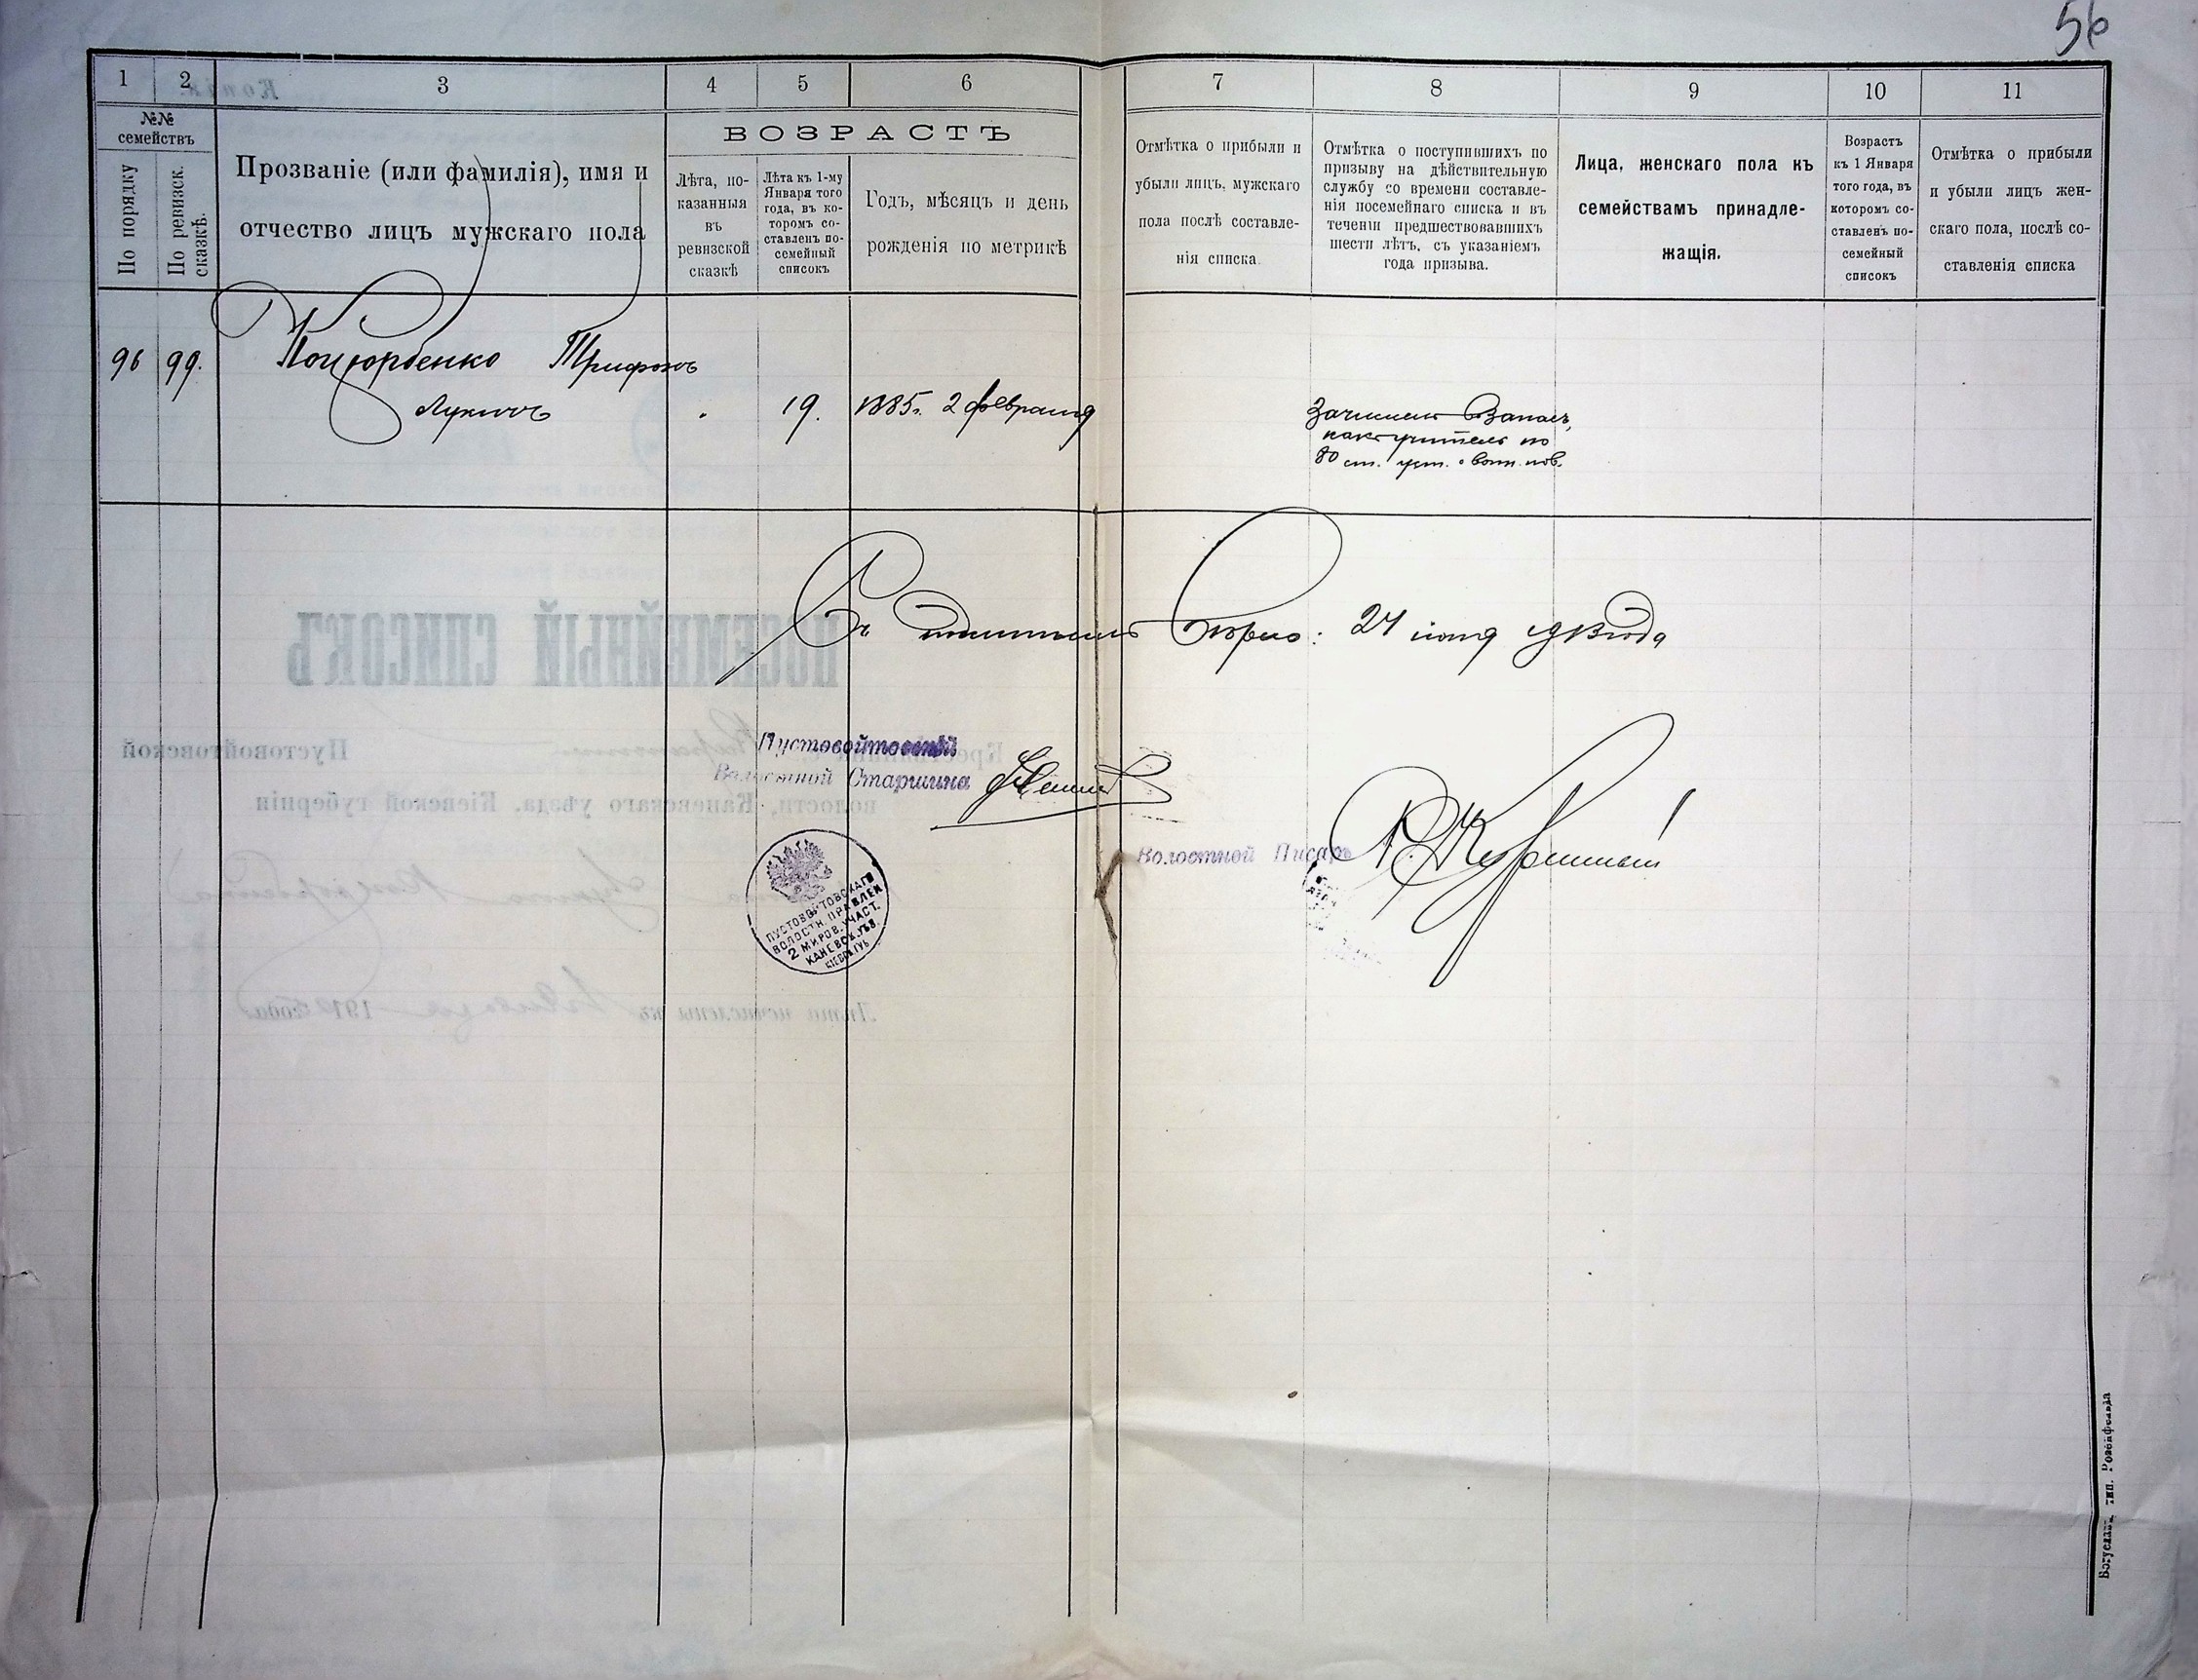 56
1 2 3 4 5 6 7 8 9 10 11
№№ семействъ
По порядку
По ревизск. сказкѣ.
Прозваніе (или фамилія), имя и
отчество лицъ мужскаго пола
ВОЗРАСТЪ
Лѣта, по-
казанныя
въ
ревизской
сказкѣ
Лѣта къ 1-му
Января того
года, въ ко-
торомъ со-
ставленъ по-
семейный
списокъ
Годъ, мѣсяцъ и день
рожденія по метрикѣ
Отмѣтка о прибыли и
убыли лицъ, мужскаго
пола послѣ составле-
нія списка
Отмѣтка о поступившихъ по
призыву на дѣйствительную
службу со времени составле-
нія посемейнаго списка и въ
теченіи предшествовавшихъ
шести лѣтъ, съ указаніемъ
года призыва.
Лица, женскаго пола къ
семействамъ принадле-
жащія.
Возрастъ
къ 1 Января
того года, въ
которомъ со-
ставленъ по-
семейный
списокъ
Отмѣтка о прибыли
и убыли лицъ жен-
скаго пола, послѣ со-
ставленія списка
96 99. Коцюрбенко Трифонъ
Лукичъ 19. 1885г. 2 февраля
Зачисленъ въ Запасъ,
какъ учитель по
80 ст. уст. о воин. пов.
Съ подлиннымъ вѣрно: 24 іюня 1913 года
Пустовойтовскій
Волостной Старшина
Волостной Писарь
ПУСТОВОЙТОВСКАГО
ВОЛОСТН. ПРАВЛЕН.
2 МИРОВ. УЧАСТ.
КАНЕВСК. УѢЗ.
КІЕВСК. ГУБ.
Копія.
ПОСЕМЕЙНЫЙ СПИСОКЪ
Пустовойтовской
волости, Каневскаго уѣзда, Кіевской губерніи
Лѣта исчислены къ 1 Января 191 года
Богуславъ, тип. Розенфельда